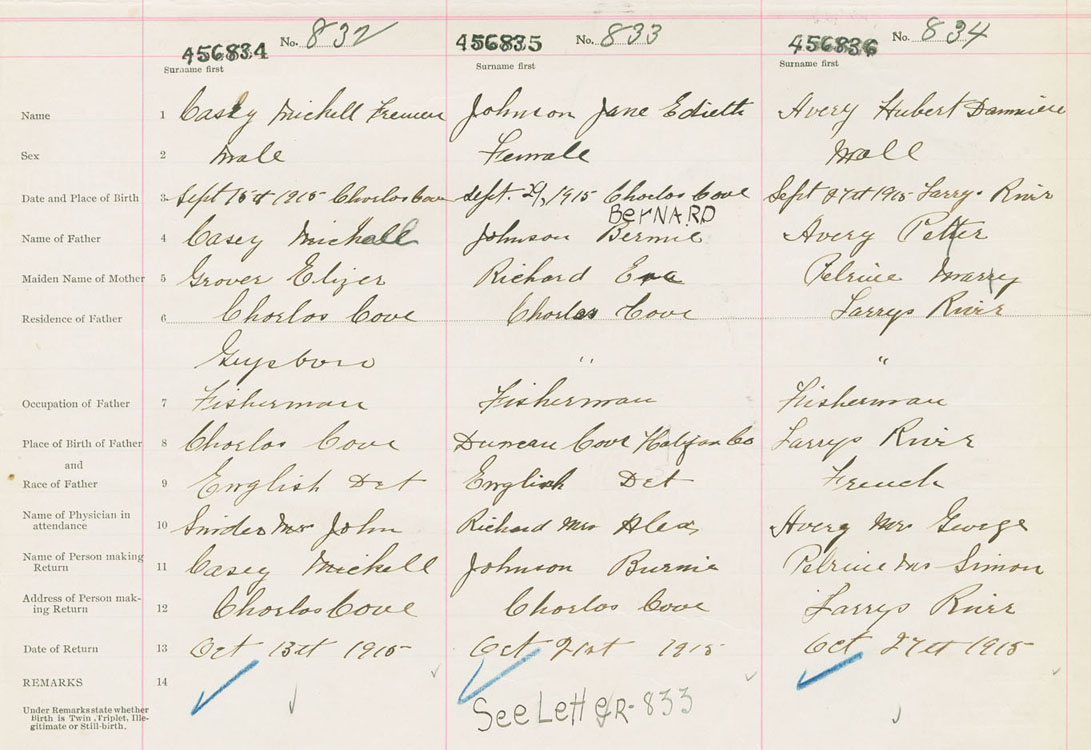 456834 No. 832 456835 No. 833 456836 No. 834
Surname first Surname first Surname first
Name 1 Casey Michell Johnson Jane Edieth Avery Hubert
Sex 2 Male Female Male
Date and Place of Birth 3 Sept 15st 1915 Chorlos Cove Sept. 21, 1915 Chorlos Cove Sept 27st 1915 Larrys River
BerNARD
Name of Father 4 Casey Michell Johnson Bernie Avery Petter
Maiden Name of Mother 5 Grover Elizer Richard Eva Pelrine Marry
Residence of Father 6 Chorlos Cove Chorlos Cove Larrys River
Guysboro " "
Occupation of Father 7 Fisherman Fisherman Fisherman
Place of Birth of Father 8 Chorlos Cove Duncan Cove Halifax Co Larrys River
and
Race of Father 9 English Det English Det French
Name of Physician in
attendance 10 Snider Mrs John Richard Mrs Alex Avery Mrs George
Name of Person making
Return 11 Casey Michell Johnson Burnie Pelrine Mrs Simon
Address of Person mak-
ing Return 12 Chorlos Cove Chorlos Cove Larrys River
Date of Return 13 Oct 13st 1915 Oct 21st 1915 Oct 27st 1915
REMARKS 14
Under Remarks state whether
Birth is Twin, Triplet, Ille-
gitimate or Still-birth.
See LetteR-833